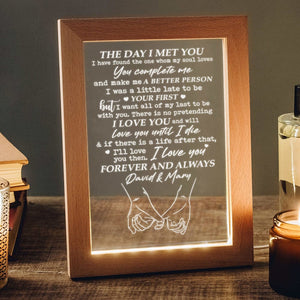 THE DAY I MET YOU
I have found the one whom my soul loves
You complete me
and make me A BETTER PERSON
I was a little late to be
YOUR FIRST
but I want all of my last to be
with you. There is no pretending
I LOVE YOU and will
love you until I die
& if there is a life after that,
I'll love you then. I love you
FOREVER AND ALWAYS
David & Mary